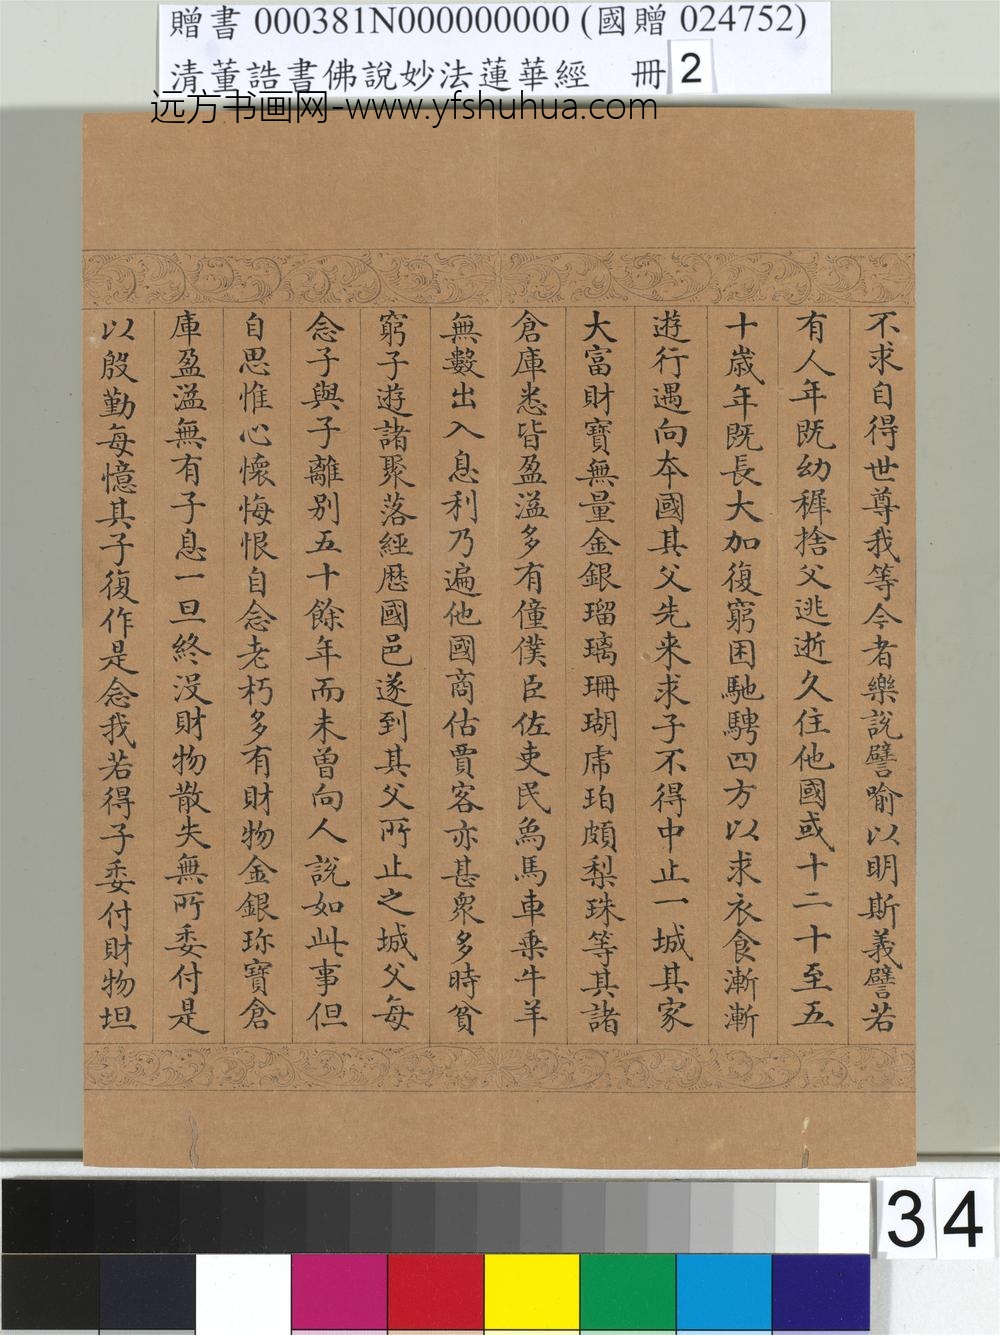 贈書 000381N000000000 (國贈 024752)
清董誥書佛說妙法蓮華經 冊 2
远方书画网-www.yfshuhua.com
不求自得世尊我等今者樂說譬喻以明斯義譬若
有人年既幼稺捨父逃逝久住他國或十二十至五
十歲年既長大加復窮困馳騁四方以求衣食漸漸
遊行遇向本國其父先来求子不得中止一城其家
大富財寶無量金銀瑠璃珊瑚虎珀頗梨珠等其諸
倉庫悉皆盈溢多有僮僕臣佐吏民烏馬車乘牛羊
無數出入息利乃遍他國商估賈客亦甚衆多時貧
窮子遊諸聚落經歷國邑遂到其父所止之城父每
念子與子離別五十餘年而未曾向人說如此事但
自思惟心懷悔恨自念老朽多有財物金銀珎寶倉
庫盈溢無有子息一旦終沒財物散失無所委付是
以殷勤每憶其子復作是念我若得子委付財物坦
34